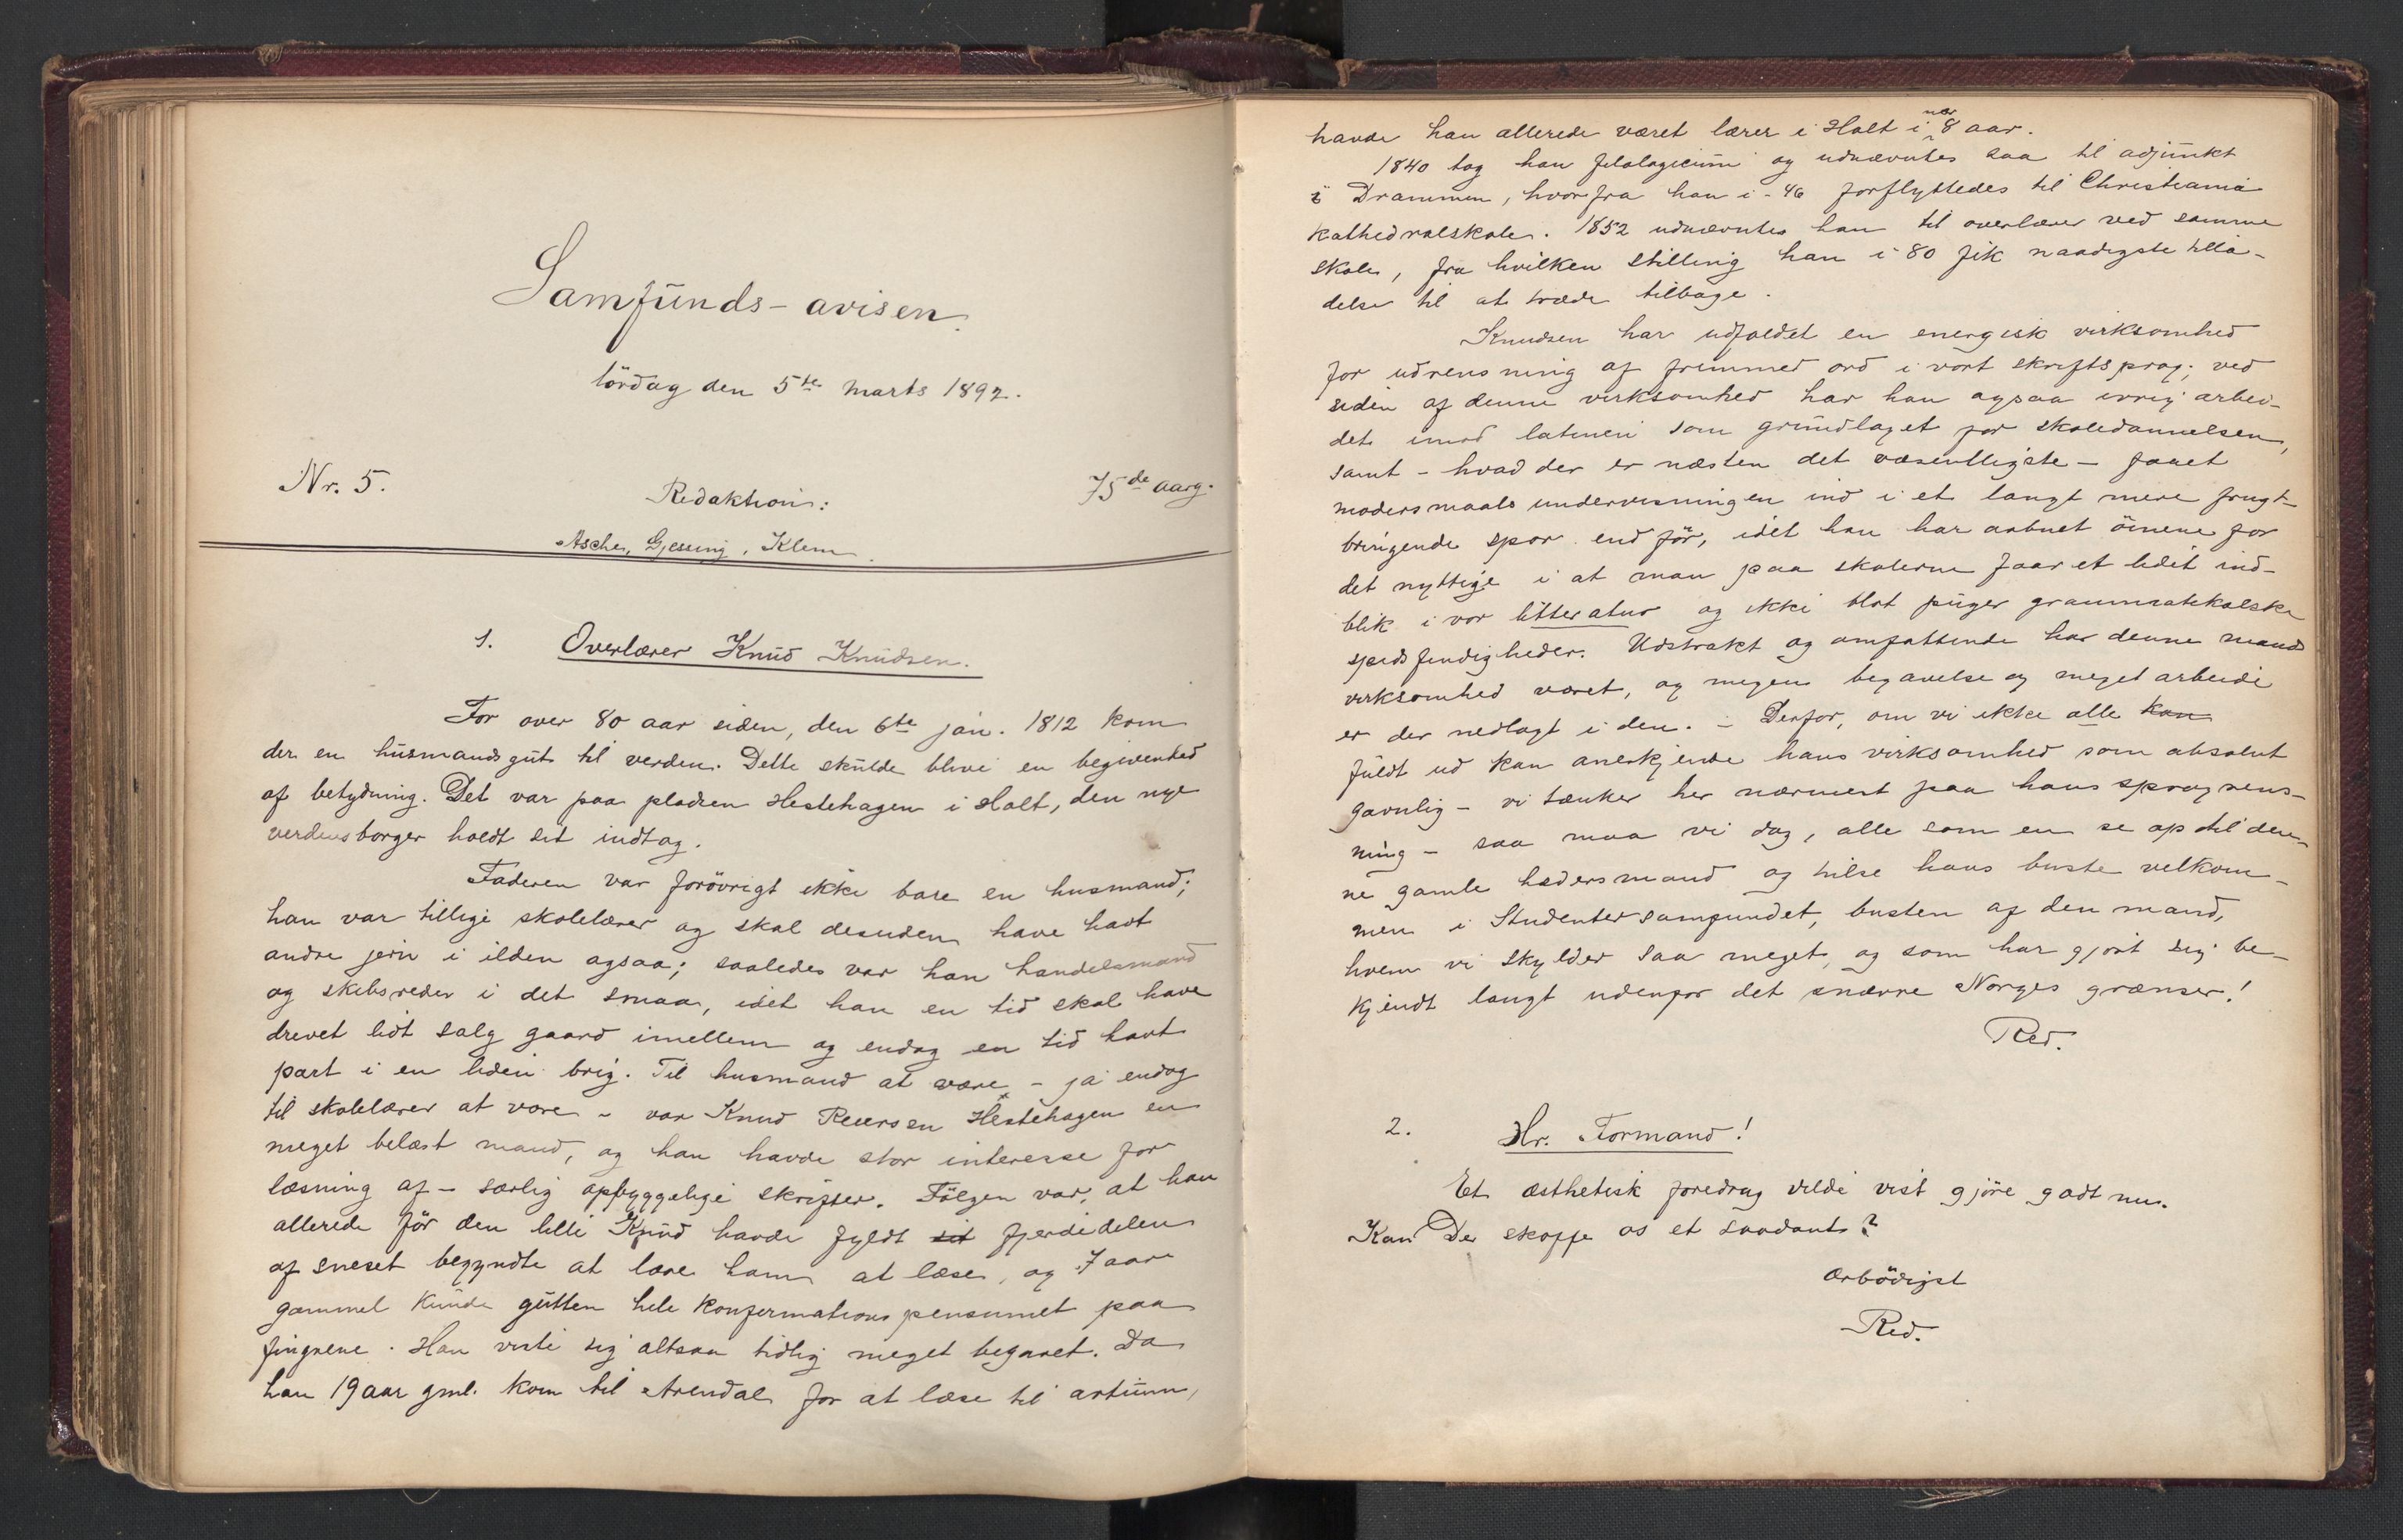 Samfunds-avisen.
lördag den 5te marts 1892.
Nr. 5.
75de aarg.
Redaktion:
Asche, Gjessing, Klem.
1. Overlærer Knud Knudsen.
For over 80 aar siden, den 6te jan. 1812 kom
der en husmandsgut til verden. Dette skulde blive en begivenhed
af betydning. Det var paa pladsen Hestehagen i Holt, den nye
verdensborger holdt sit indtog.
Faderen var forövrigt ikke bare en husmand;
han var tillige skolelærer og skal desuden have havt
andre jern i ilden ogsaa; saaledes var han handelsmand
og skibsreder i det smaa, idet han en tid skal have
drevet lidt salg gaard imellem og endog en tid havt
part i en liden brig. Til husmand at være - ja endog
til skolelærer at være - var Knud Reiersen Hestehagen en
meget belæst mand, og han havde stor interesse for
læsning af - særlig opbyggelige skrifter. Fölgen var, at han
allerede för den lille Knud havde fyldt sit fjerdedelen
af sneset begyndte at lære ham at læse, og 7 aar
gammel kunde gutten hele konfirmationspensumet paa
fingrene. Han viste sig altsaa tidlig meget begavet. Da
han 19 aar gml. kom til Arendal for at læse til artium,
havde han allerede været lærer i Holt i nær 8 aar.
1840 tog han filologicum og udnævntes saa til adjunkt
i Drammen, hvorfra han i -46 forflyttedes til Christiania
kathedralskole. 1852 udnævntes han til overlærer ved samme
skole, fra hvilken stilling han i 80 fik naadigste tilla-
delse til at træde tilbage.
Knudsen har udfoldet en energisk virksomhed
for udrensning af fremmed ord i vort skriftsprog; ved
siden af denne virksomhed har han ogsaa ivrig arbei-
det imod latinen som grundlaget for skoledannelsen,
samt - hvad der er næsten det væsentligste - faaet
modersmaalsundervisningen ind i et langt mere frugt-
bringende spor end för, idet han har aabnet öinene for
det nyttige i at man paa skolerne faar et lidet ind-
blik i vor litteratur og ikke blot puger grammatikalske
spidsfindigheder. Udstrakt og omfattende har denne mands
virksomhed været, og megen begavelse og meget arbeide
er der nedlagt i den. - Derfor, om vi ikke alle kan
fuldt ud kan anerkjende hans virksomhed som absolut
gavnlig - vi tænker her nærmest paa hans sprogrens-
ning - saa maa vi dog, alle som en se op til den-
ne gamle hædersmand og hilse hans buste velkom-
men i Studentersamfundet, busten af den mand,
hvem vi skylder saa meget, og som har gjort sig be-
kjendt langt udenfor det snævre Norges grænser!
Red.
2. Hr. Formand!
Et æsthetisk foredrag vilde vist gjöre godt nu.
Kan De skaffe os et saadant?
Ærbödigst
Red.